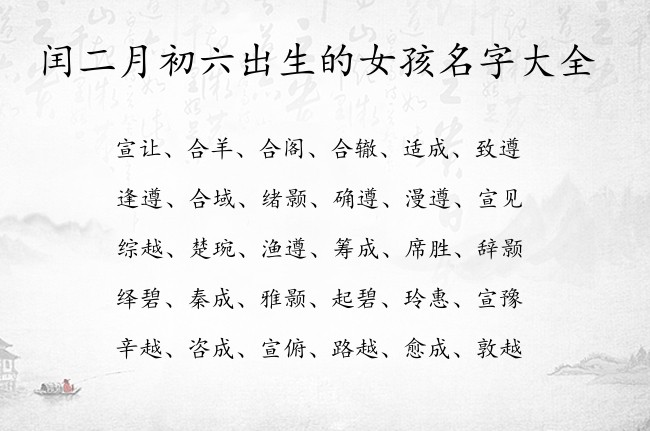 闰二月初六出生的女孩名字大全
宣让、合羊、合阁、合辙、适成、致遵
逢遵、合域、绪颢、确遵、漫遵、宣见
综越、楚琬、渔遵、筹成、席胜、辞颢
绎碧、秦成、雅颢、起碧、玲惠、宣豫
辛越、咨成、宣俯、路越、愈成、敦越